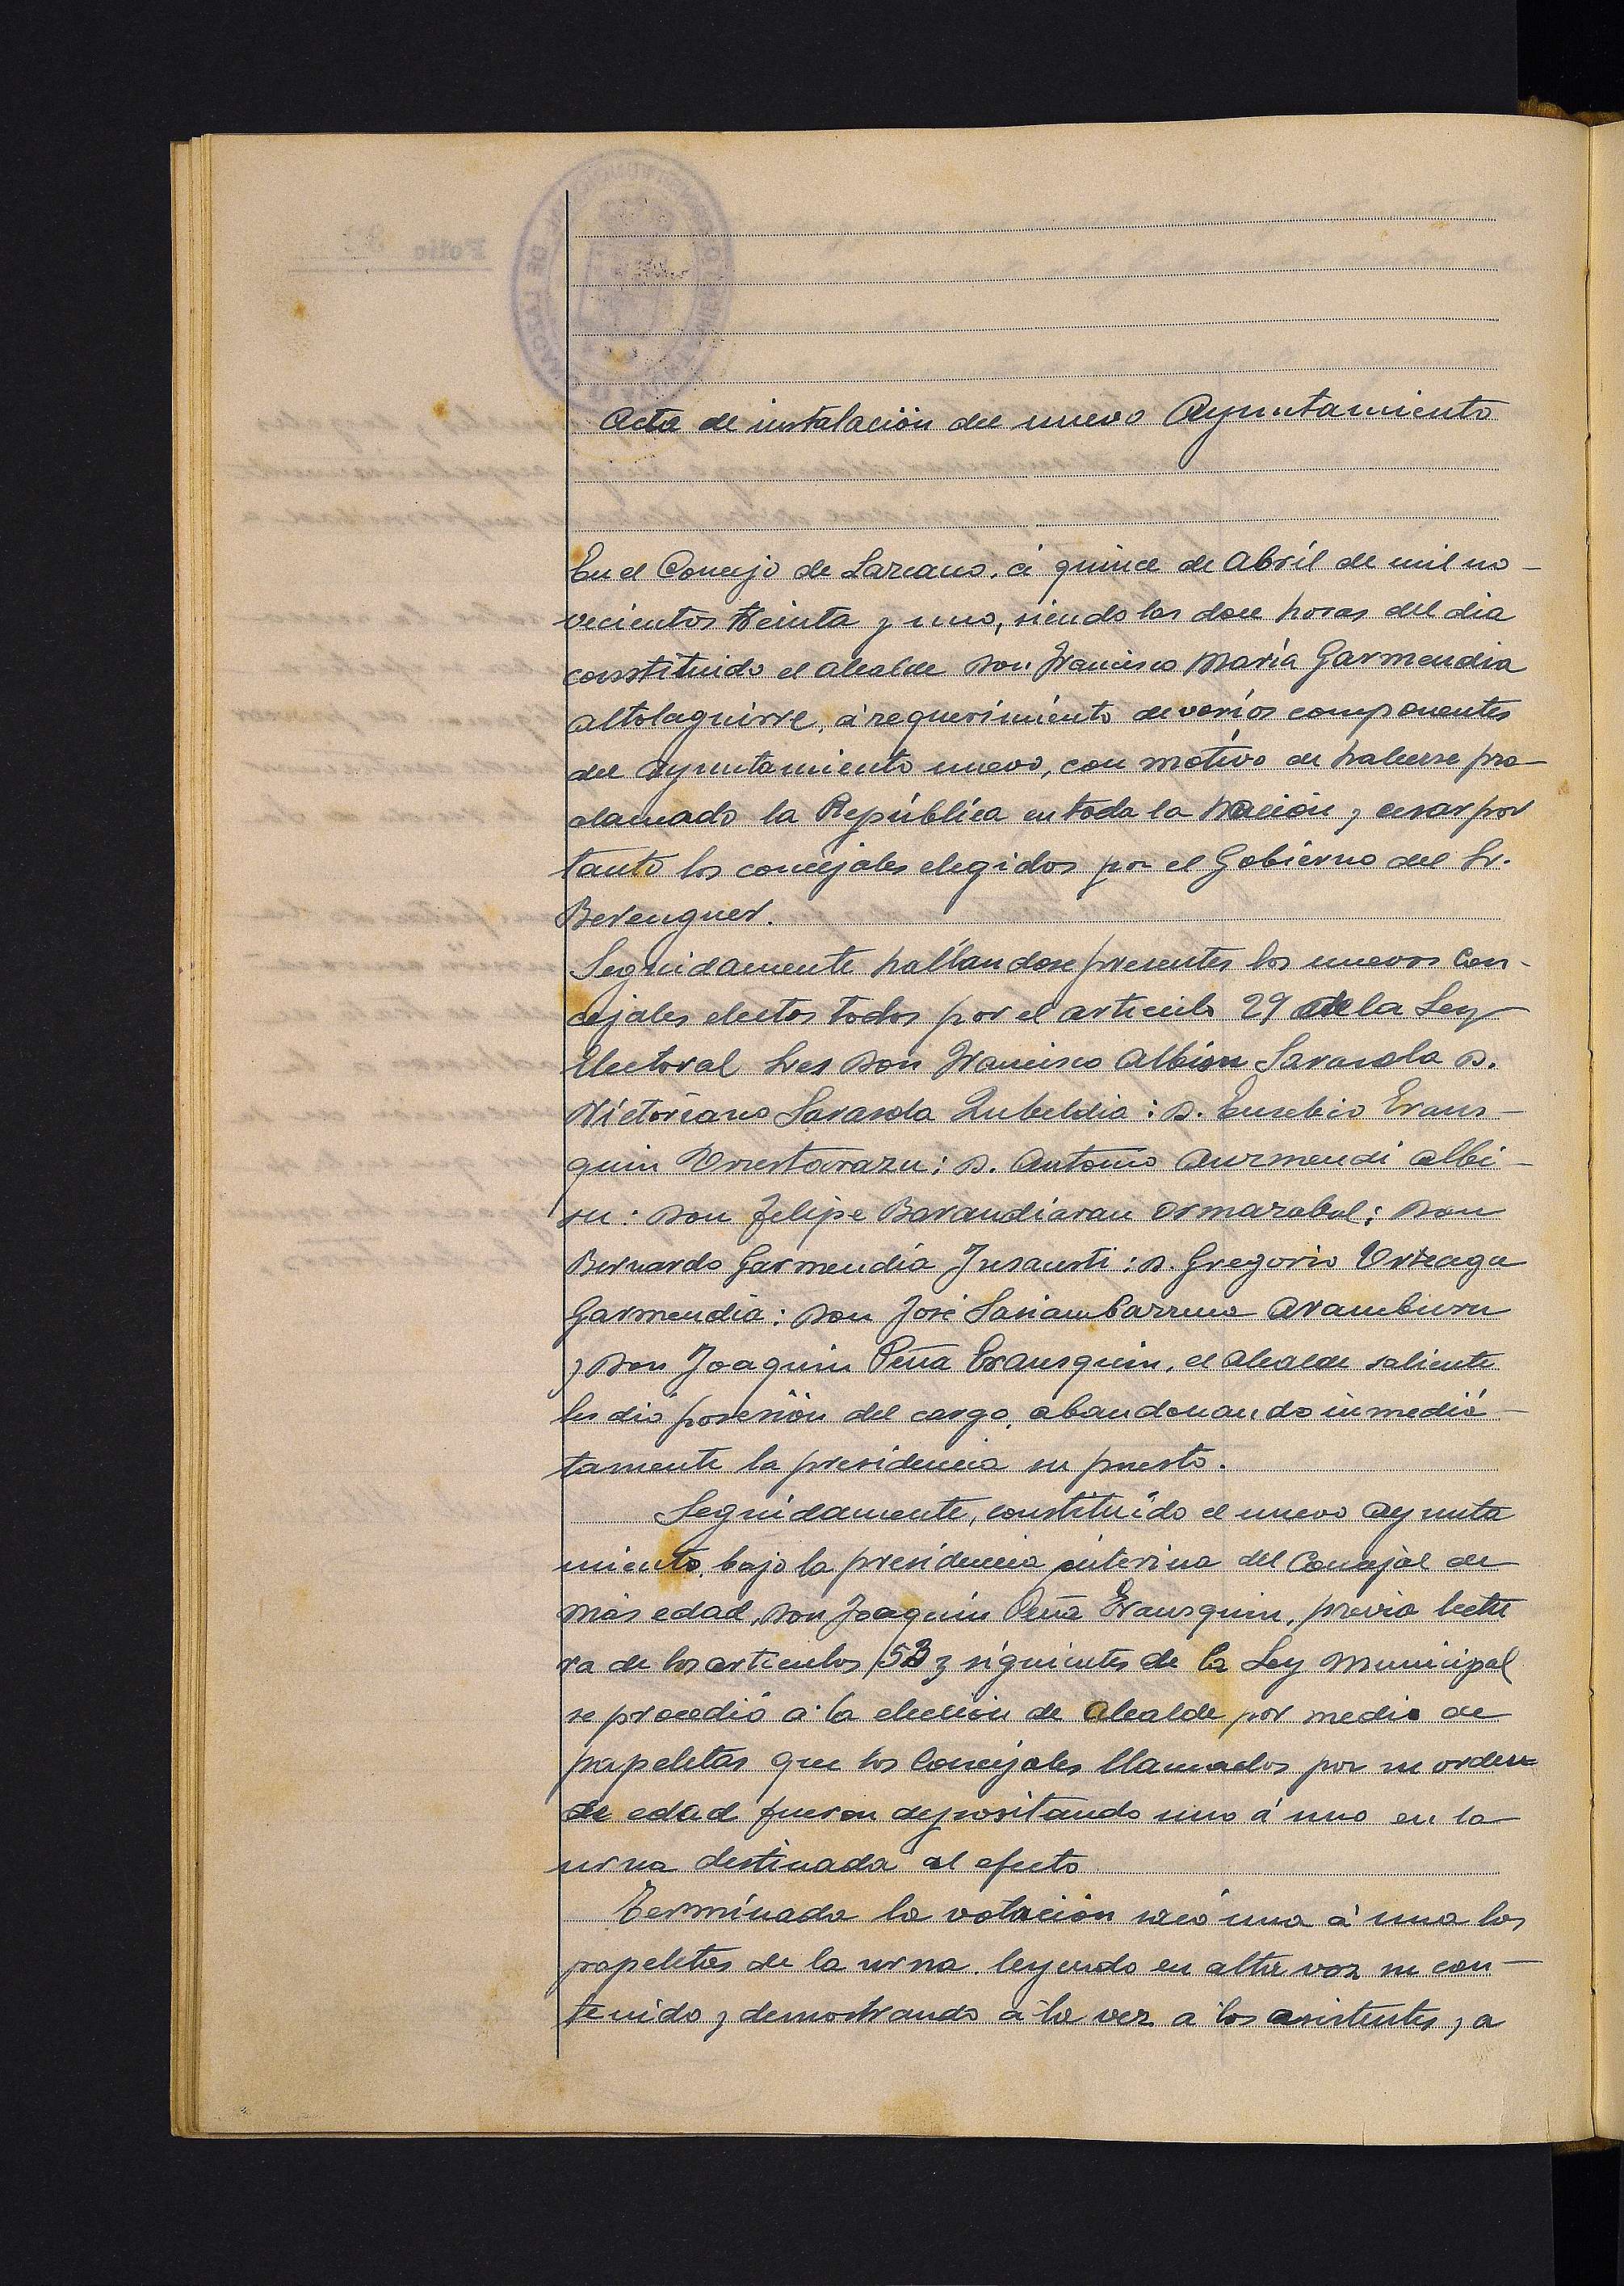 Acta de instalación del nuevo Ayuntamiento
En el Concejo de Lazcano, á quince de Abril de mil no-
vecientos treinta y uno, siendo las doce horas del dia
constituido el alcalde Don Francisco María Garmendia
Altolaguirre, á requerimiento de varios componentes
del Ayuntamiento nuevo, con motivo de haberse pro-
clamado la República en toda la Nación y cesar por
tanto los concejales elegidos por el Gobierno del Sr.
Berenguer.
Seguidamente hallandose presentes los nuevos Con-
cejales electos todos por el articulo 29 de la Ley
Electoral Sres Don Francisco Albisu Sarasola D.
Victoriano Sarasola Zubeldia: D. Eusebio Eraus-
quin Urrestarazu: D. Antonio Aurmendi Albi-
su: Don Felipe Barandiaran Ormazabal: Don
Bernardo Garmendia Insausti: D. Gregorio Urteaga
Garmendia: Don José Sasiambarrena Aramburu
y Don Joaquin Peña Erausquin, el alcalde saliente
les dió posesión del cargo, abandonando inmedia-
tamente la presidencia su puesto.
Seguidamente, constituido el nuevo ayunta
miento, bajo la presidencia interina del Concejal de
más edad, Don Joaquin Peña Erausquin, previa lectu
ra de los articulos 53 y siguientes de la Ley Municipal
se procedió á la elección de Alcalde por medio de
papeletas que los Concejales llamados por su orden
de edad fueron depositando uno á uno en la
urna destinada al efecto
Terminada la votación sacó una á una las
papeletas de la urna, leyendo en alta voz su con-
tenido y demostrando á la vez a los asistentes, a